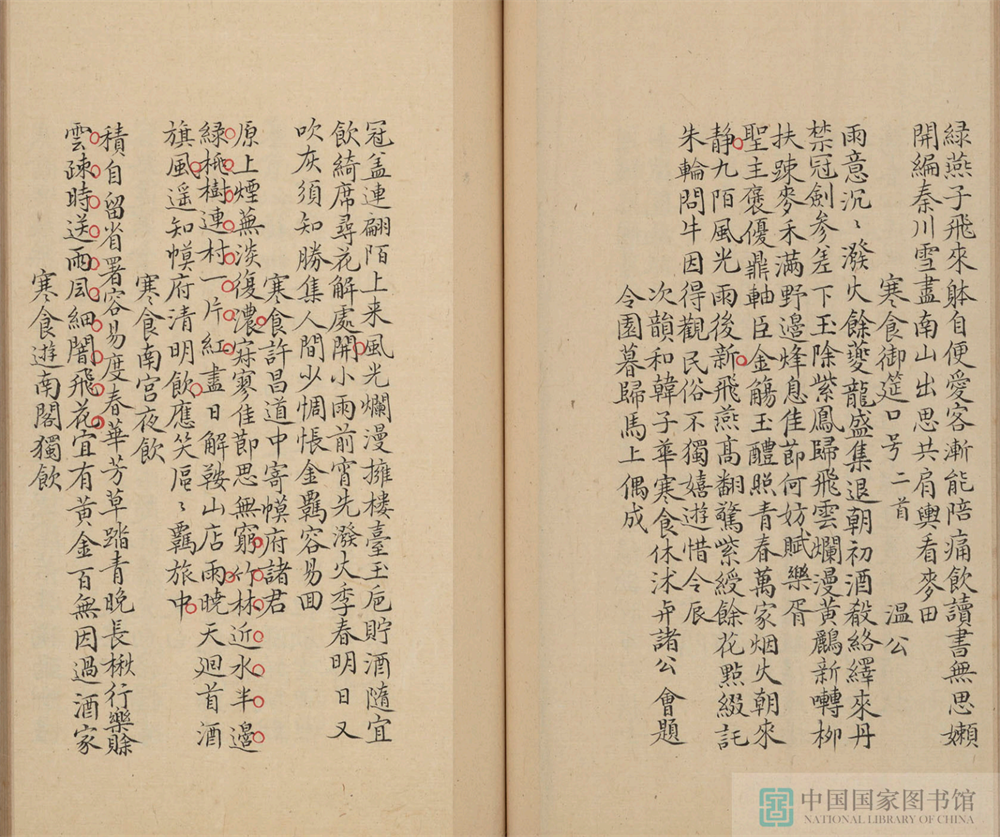 緑燕子飛來躰自便愛客漸能陪痛飲讀書無思嬾
開編秦川雪盡南山出思共肩輿看麥田
寒食御筵口号二首 温公
雨意沉〻潑火餘夔龍盛集退朝初酒殽絡繹來丹
禁冠劍参差下玉除紫鳳歸飛雲爛漫黄鸝新囀柳
扶踈麥禾滿野邉烽息佳節何妨賦樂胥
聖主褒優鼎軸臣金觴玉醴照青春萬家烟火朝來
静九陌風光雨後新飛燕髙翻驚紫綬餘花㸃綴託
朱輪問牛因得觀民俗不獨嬉遊惜令辰
次韻和韓子華寒食休沐弁諸公會題
令園暮歸馬上偶成
冠盖連翩陌上来風光爛漫擁樓臺玉巵貯酒隨宜
飲綺席尋花解處開小雨前宵先潑火季春明日又
吹灰須知勝集人間少惆悵金羈容易回
寒食許昌道中寄幙府諸君
原上煙蕪淡復濃寂寥佳節思無窮竹林近水半邉
緑桃樹連村一片紅盡日解鞍山店雨曉天廻首酒
旗風遥知幙府清明飲應笑區〻羈旅中
寒食南宫夜飲
積自留省署容易度春華芳草踏青晚長楸行樂賖
雲踈時送雨風細闇飛花宜有黄金百無因過酒家
寒食遊南閣獨飲
中国国家图书馆
NATIONAL LIBRARY OF CHINA